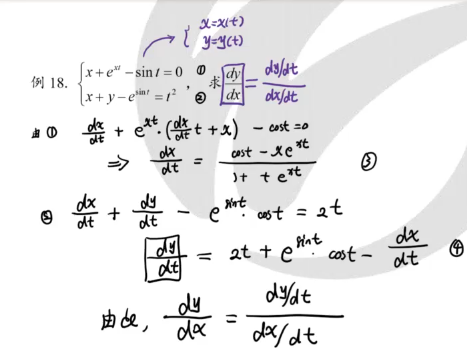 { x=x(t)
y=y(t)
例 18. { x + e^{xt} − sin t = 0 ①
x + y − e^{sin t} = t² ② , 求 dy/dx = (dy/dt)/(dx/dt)
由① dx/dt + e^{xt}·(dx/dt t + x) − cost = 0
⇒ dx/dt = (cost − xe^{xt})/(1 + t e^{xt}) ③
② dx/dt + dy/dt − e^{sint}·cost = 2t
dy/dt = 2t + e^{sint}·cost − dx/dt ④
dy/dx = (dy/dt)/(dx/dt)